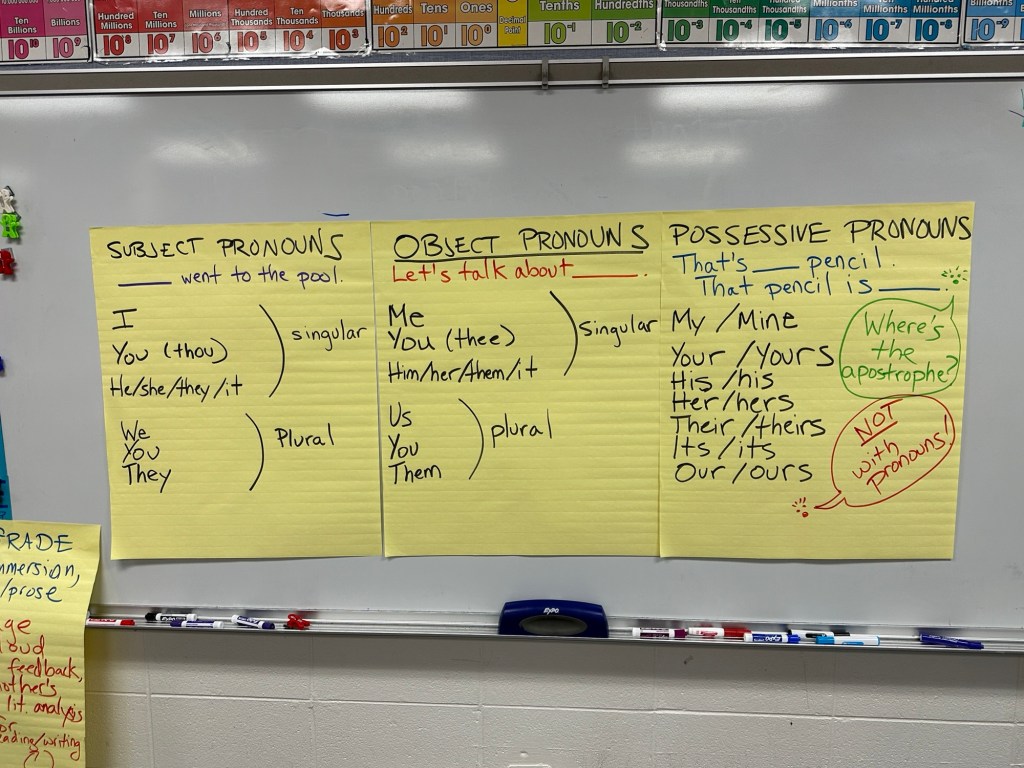 Ten Billions
10¹⁰
10⁹
Hundred Millions
10⁸
Ten Millions
10⁷
Millions
10⁶
Hundred Thousands
10⁵
Ten Thousands
10⁴
Thousands
10³
Hundreds
10²
Tens
10¹
Ones
10⁰
Decimal Point
Tenths
10⁻¹
Hundredths
10⁻²
Thousandths
10⁻³
Ten-Thousandths
10⁻⁴
Hundred Thousandths
10⁻⁵
Millionths
10⁻⁶
Ten Millionths
10⁻⁷
Hundred Millionths
10⁻⁸
Billionths
10⁻⁹
SUBJECT PRONOUNS
____ went to the pool.
I
You (thou)
He/she/they/it
singular
We
You
They
Plural
OBJECT PRONOUNS
Let's talk about ____.
Me
You (thee)
Him/her/them/it
Singular
Us
You
Them
plural
POSSESSIVE PRONOUNS
That's ___ pencil.
That pencil is ____.
My / Mine
Your / Yours
His / his
Her / hers
Their / theirs
Its / its
Our / ours
Where's
the
apostrophe?
NOT
with
pronouns!
lit. analysis
EXPO